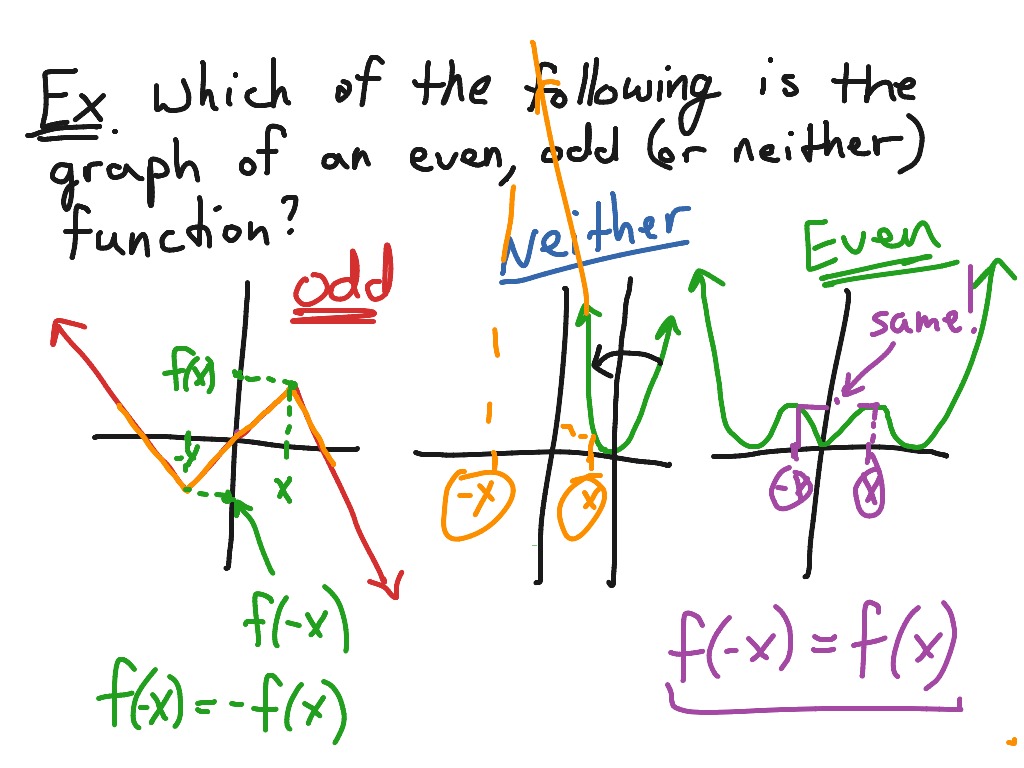 Ex. Which of the following is the
graph of an even, odd (or neither)
function?
odd
Neither
Even
same!
f(x)
-x
x
-x
x
x
f(-x)
f(-x) = -f(x)
f(-x) = f(x)